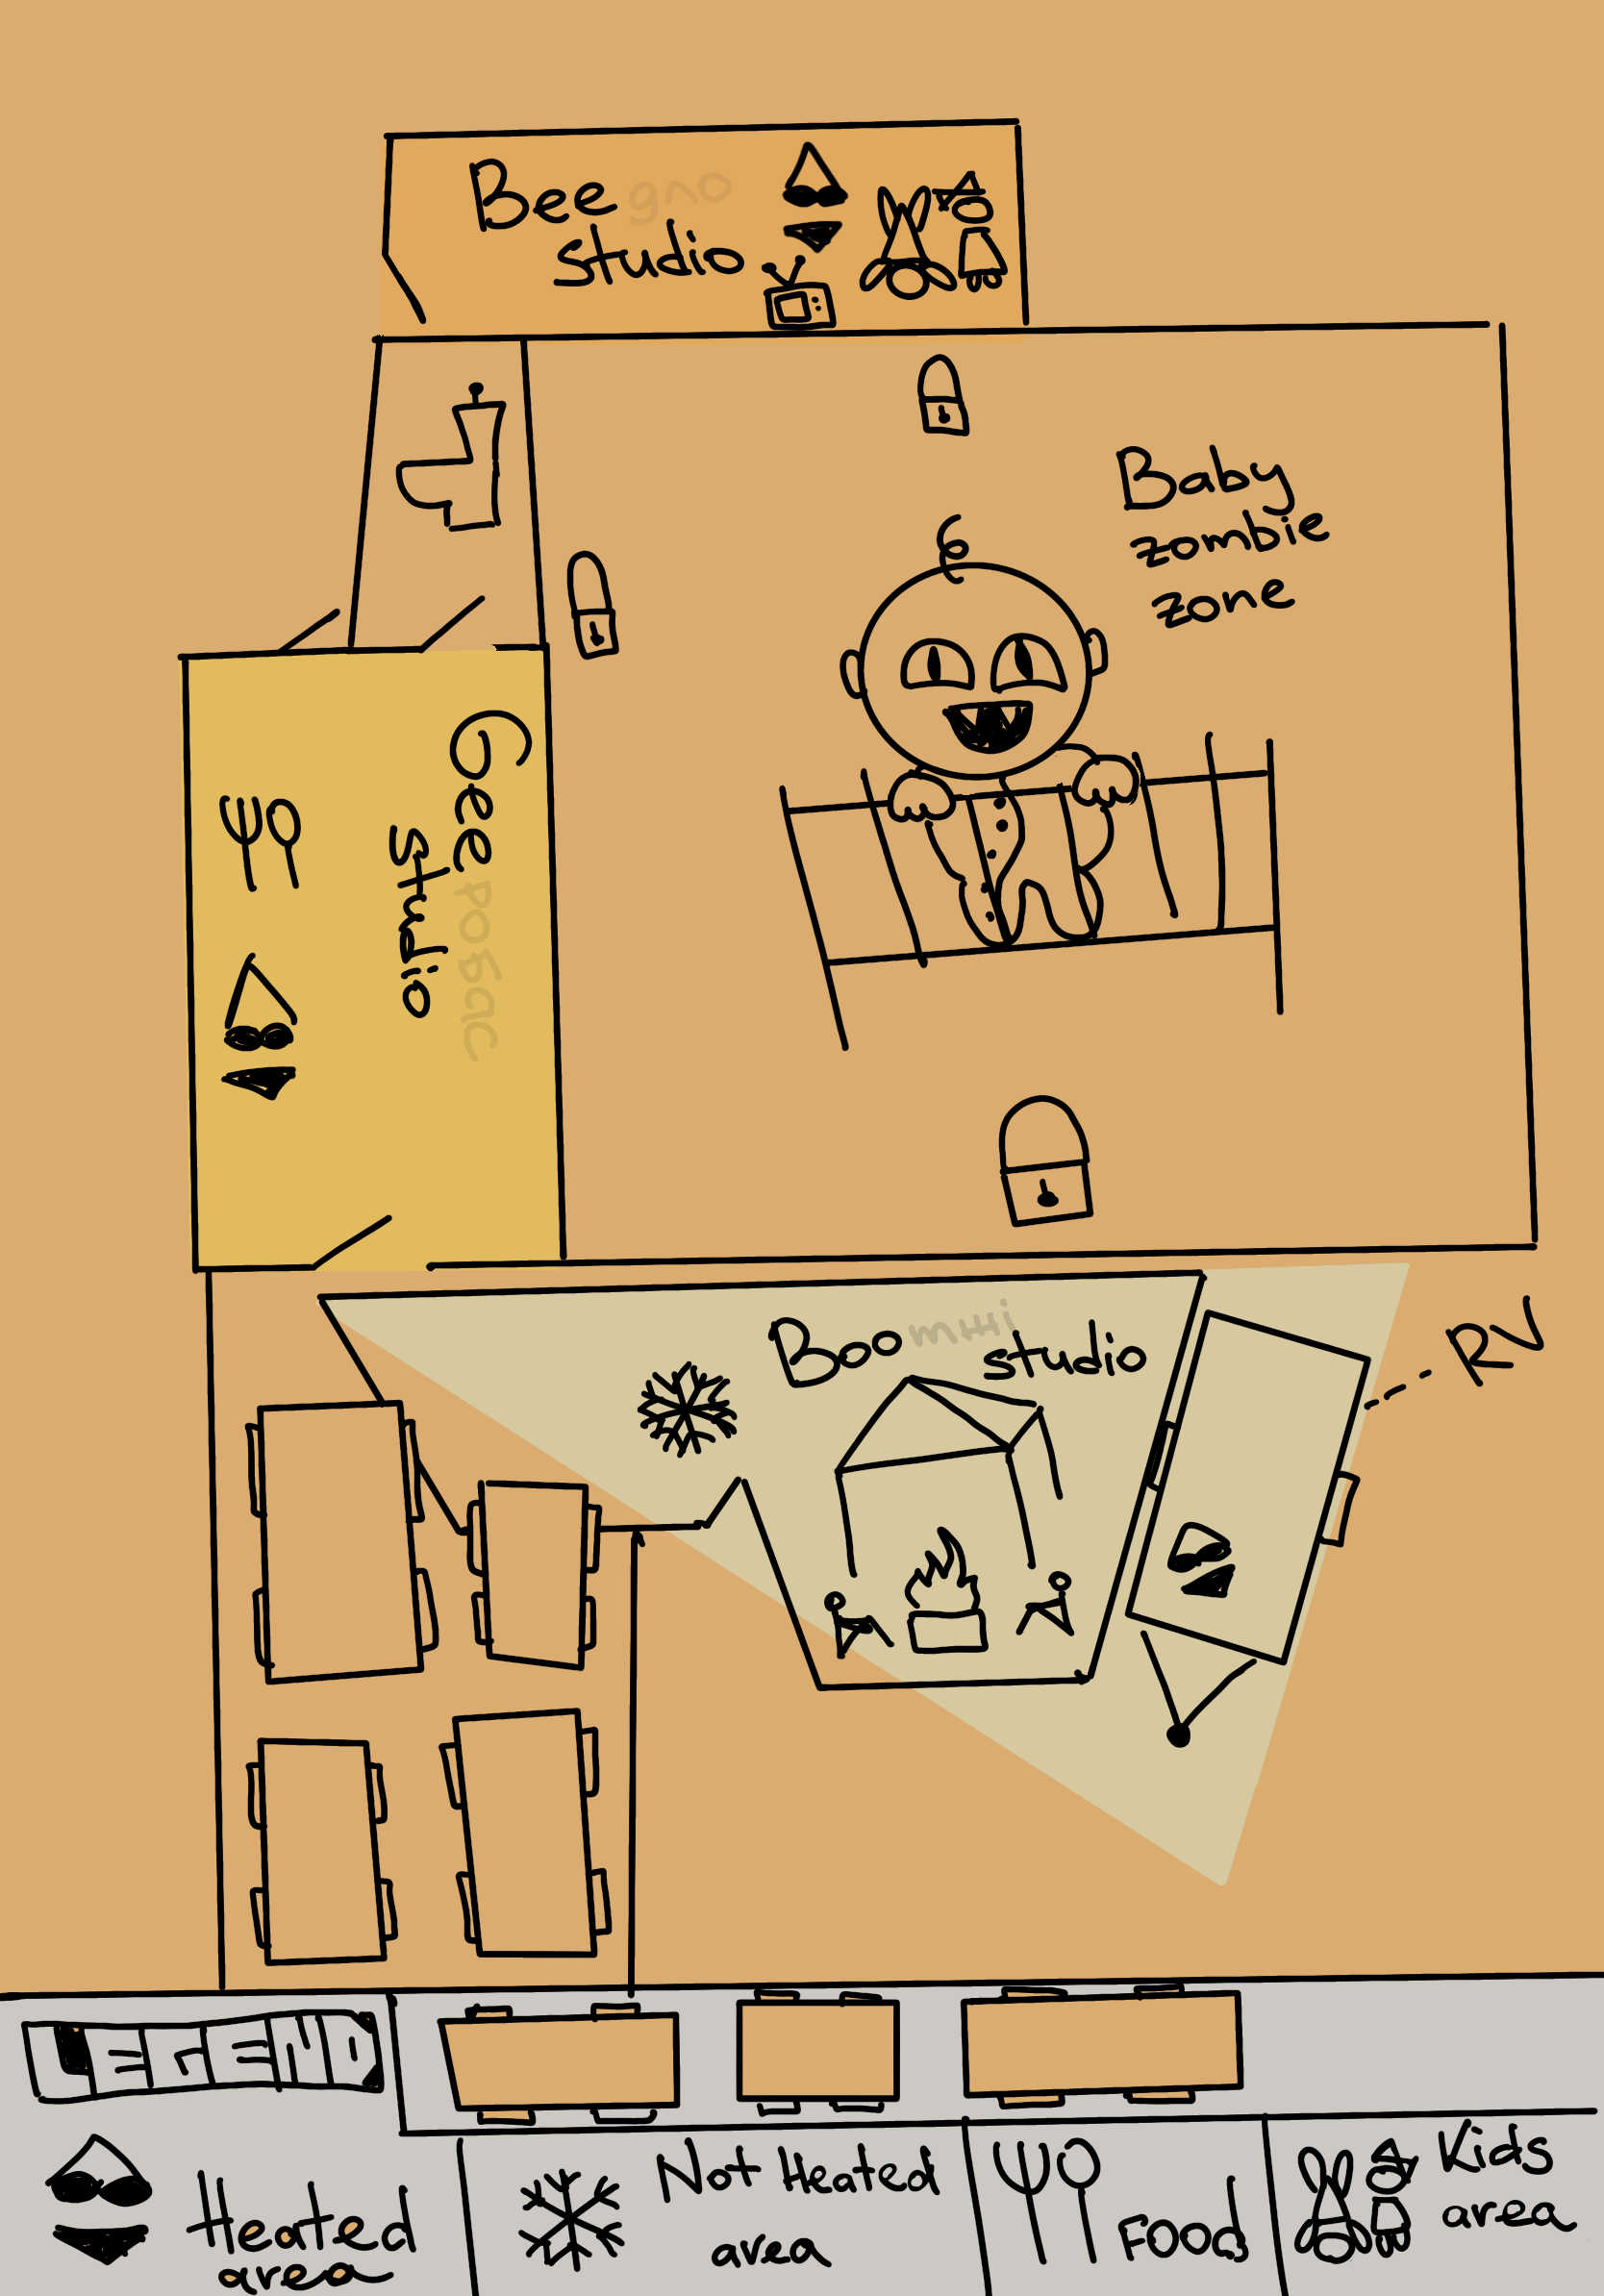 Bee
studio
Baby
zombie
zone
Gee
studio
Boo
studio
RV
LEGEND
Heated
area
Not Heated
area
FOOD
Kids
area